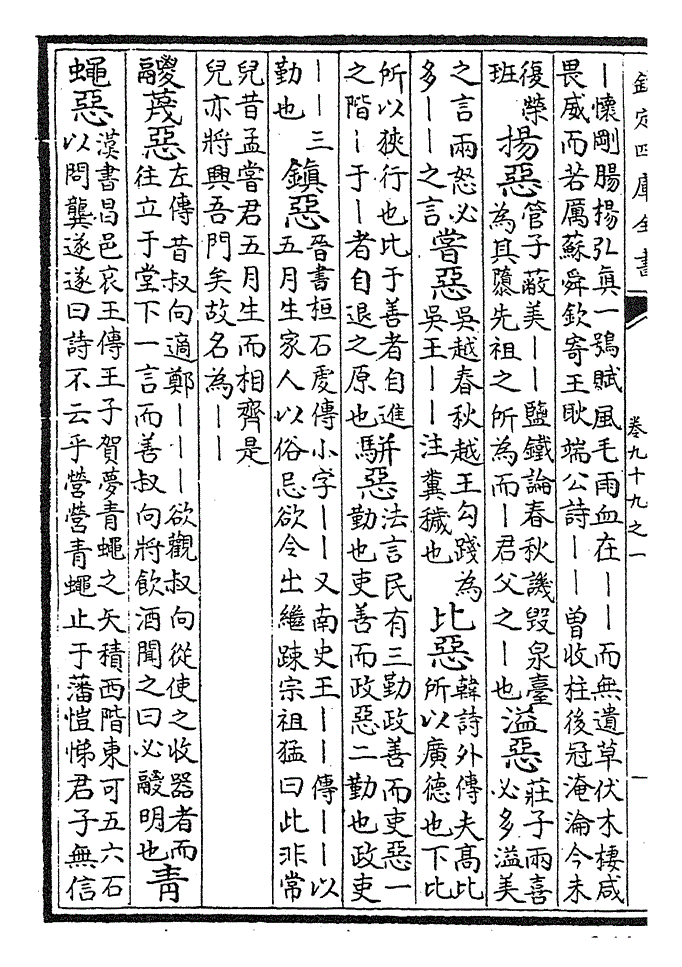 欽定四庫全書
卷九十九之一
一
丨懷剛腸楊弘真一鶚賦風毛雨血在丨丨而無遺草伏木棲咸
畏威而若厲蘇舜欽寄王耿端公詩丨丨曽收柱後冠淹淪今未
復榮班揚惡管子蔽美丨丨鹽鐵論春秋譏毀泉臺為其隳先祖之所為而丨君父之丨也溢惡莊子兩喜必多溢美
之言兩怒必多丨丨之言嘗惡吳越春秋越王勾踐為吳王丨丨注糞穢也比惡韓詩外傳夫髙比所以廣德也下比
所以狹行也比于善者自進之階丨于丨者自退之原也駢惡法言民有三勤政善而吏惡一勤也吏善而政惡二勤也政吏
丨丨三勤也鎮惡晉書桓石䖍傳小字丨丨又南史王丨丨傳丨丨以五月生家人以俗忌欲令出繼踈宗祖猛曰此非常
兒昔孟嘗君五月生而相齊是兒亦將興吾門矣故名為丨丨
鬷蔑惡左傳昔叔向適鄭丨丨丨欲觀叔向從使之收器者而往立于堂下一言而善叔向將飲酒聞之曰必鬷明也青
蠅惡漢書昌邑哀王傳王子賀夢青蠅之矢積西階東可五六石以問龔遂遂曰詩不云乎營營青蠅止于藩愷悌君子無信